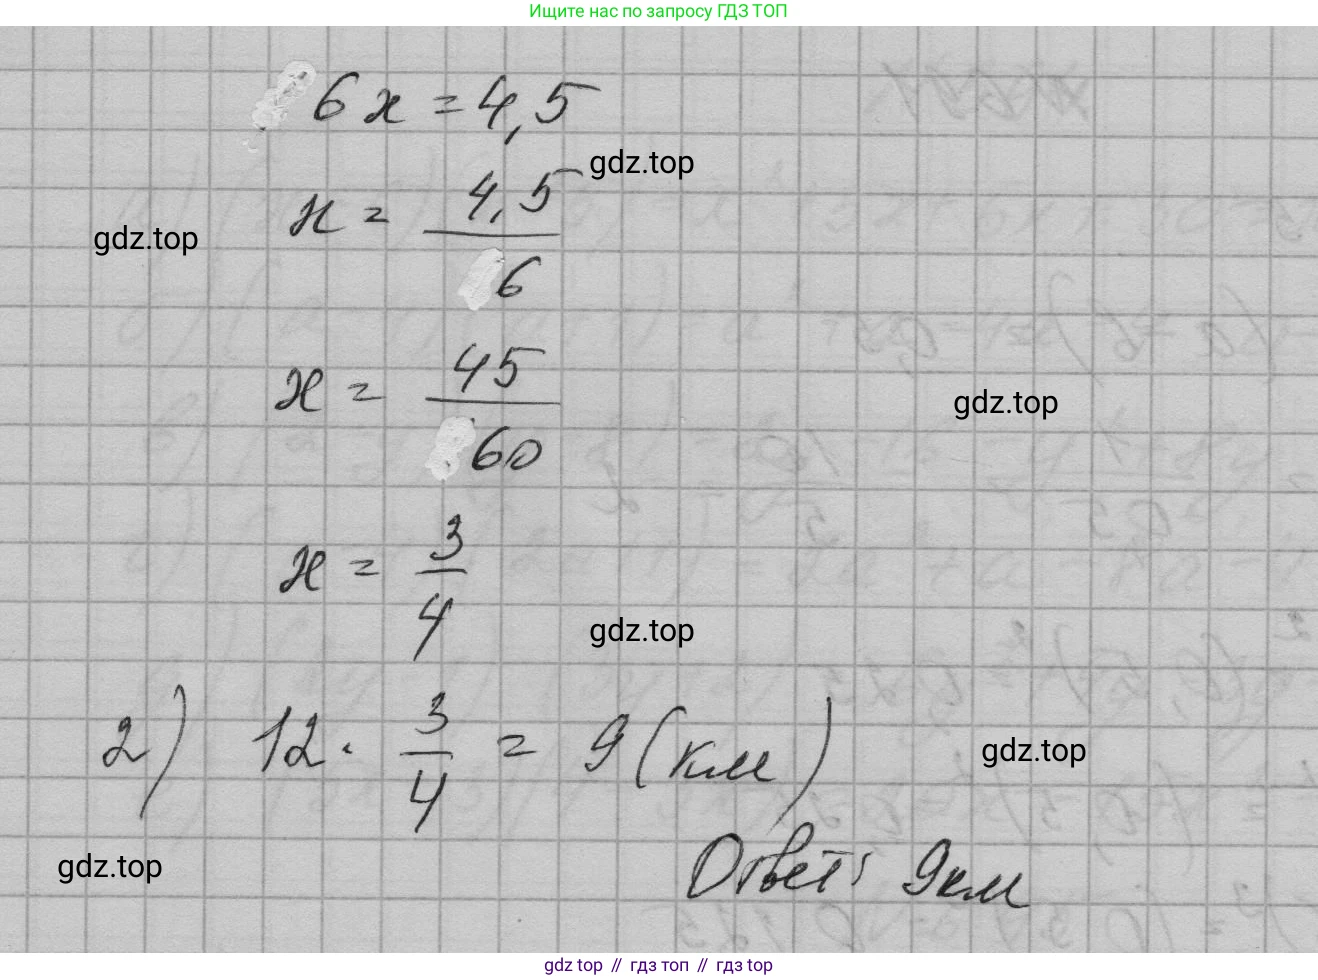 Ищите нас по запросу ГДЗ ТОП
6x = 4,5
gdz.top
x = 4,5/6
gdz.top
x = 45/60
gdz.top
x = 3/4
gdz.top
2) 12 · 3/4 = 9 (км)
gdz.top
gdz.top
Ответ: 9 км
gdz top // гдз топ // гдз top